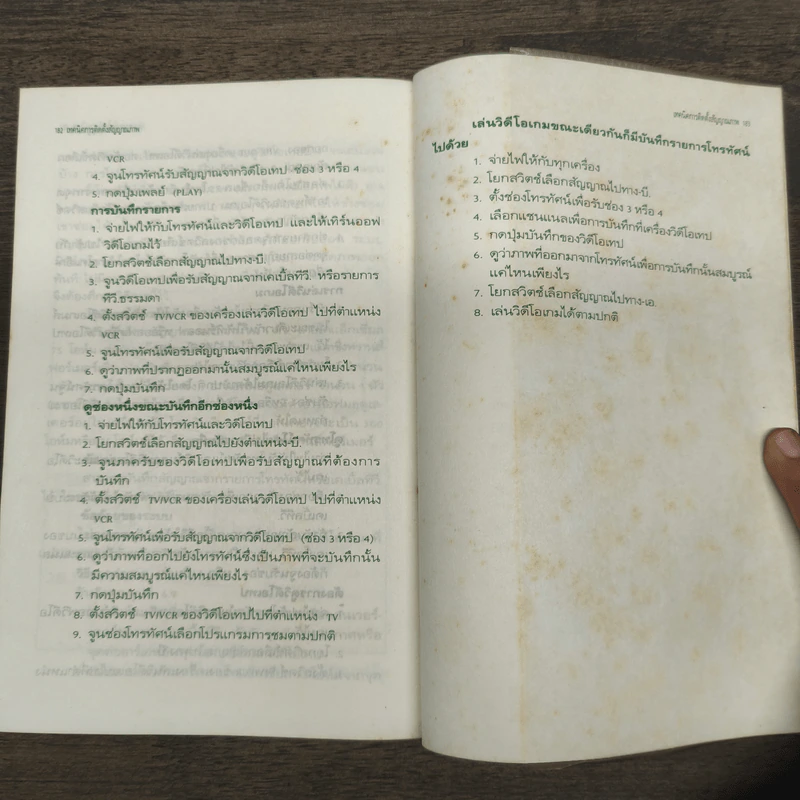 182 เทคนิคการติดตั้งสัญญาณภาพ
VCR
4. จูนโทรทัศน์รับสัญญาณจากวิดีโอเทป ช่อง 3 หรือ 4
5. กดปุ่มเพลย์ (PLAY)
การบันทึกรายการ
1. จ่ายไฟให้กับโทรทัศน์และวิดีโอเทป และให้เทิร์นออฟ
วิดีโอเกมไว้
2. โยกสวิตช์เลือกสัญญาณไปทาง-บี.
3. จูนวิดีโอเทปเพื่อรับสัญญาณจากเคเบิ้ลทีวี. หรือรายการ
ทีวี.ธรรมดา
4. ตั้งสวิตช์ TV/VCR ของเครื่องเล่นวิดีโอเทป ไปที่ตำแหน่ง
VCR
5. จูนโทรทัศน์เพื่อรับสัญญาณจากวิดีโอเทป
6. ดูว่าภาพที่ปรากฏออกมานั้นสมบูรณ์แค่ไหนเพียงไร
7. กดปุ่มบันทึก
ดูช่องหนึ่งขณะบันทึกอีกช่องหนึ่ง
1. จ่ายไฟให้กับโทรทัศน์และวิดีโอเทป
2. โยกสวิตช์เลือกสัญญาณไปยังตำแหน่ง-บี.
3. จูนภาครับของวิดีโอเทปเพื่อรับสัญญาณที่ต้องการ
บันทึก
4. ตั้งสวิตช์ TV/VCR ของเครื่องเล่นวิดีโอเทป ไปที่ตำแหน่ง
VCR
5. จูนโทรทัศน์เพื่อรับสัญญาณจากวิดีโอเทป (ช่อง 3 หรือ 4)
6. ดูว่าภาพที่ออกไปยังโทรทัศน์ซึ่งเป็นภาพที่จะบันทึกนั้น
มีความสมบูรณ์แค่ไหนเพียงไร
7. กดปุ่มบันทึก
8. ตั้งสวิตช์ TV/VCR ของวิดีโอเทปไปที่ตำแหน่ง TV
9. จูนช่องโทรทัศน์เลือกโปรแกรมการชมตามปกติ
เทคนิคการติดตั้งสัญญาณภาพ 183
เล่นวิดีโอเกมขณะเดียวกันก็มีบันทึกรายการโทรทัศน์
ไปด้วย
1. จ่ายไฟให้กับทุกเครื่อง
2. โยกสวิตช์เลือกสัญญาณไปทาง-บี.
3. ตั้งช่องโทรทัศน์เพื่อรับช่อง 3 หรือ 4
4. เลือกแชนแนลเพื่อการบันทึกที่เครื่องวิดีโอเทป
5. กดปุ่มบันทึกของวิดีโอเทป
6. ดูว่าภาพที่ออกมาจากโทรทัศน์เพื่อการบันทึกนั้นสมบูรณ์
แค่ไหนเพียงไร
7. โยกสวิตช์เลือกสัญญาณไปทาง-เอ.
8. เล่นวิดีโอเกมได้ตามปกติ